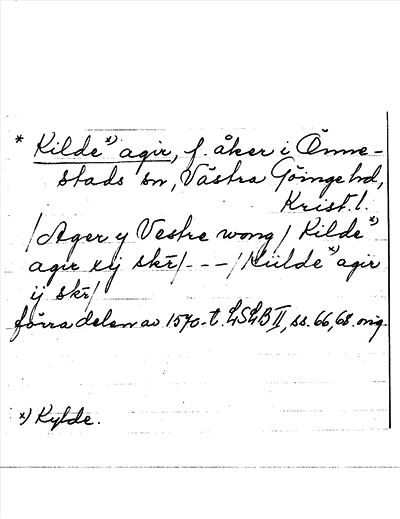 * Kilde x) agir, f. åker i Önne-
stads sn, Västra Göinge hd,
Krist. l.
/Ager y Vestre wong/ Kilde x)
agir xij skr/ - - - /Kiilde x) agir
ij skr/
förra delen av 1570-t. LSLB II, ss. 66, 68. orig.
x) Kylde.